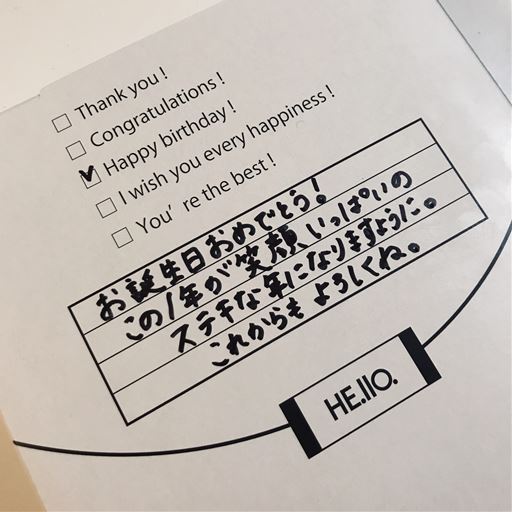 Thank you!
Congratulations!
Happy birthday!
I wish you every happiness!
You're the best!
お誕生日おめでとう!
この1年が笑顔いっぱいの
ステキな年になりますように。
これからも よろしくね。
HE.llO.